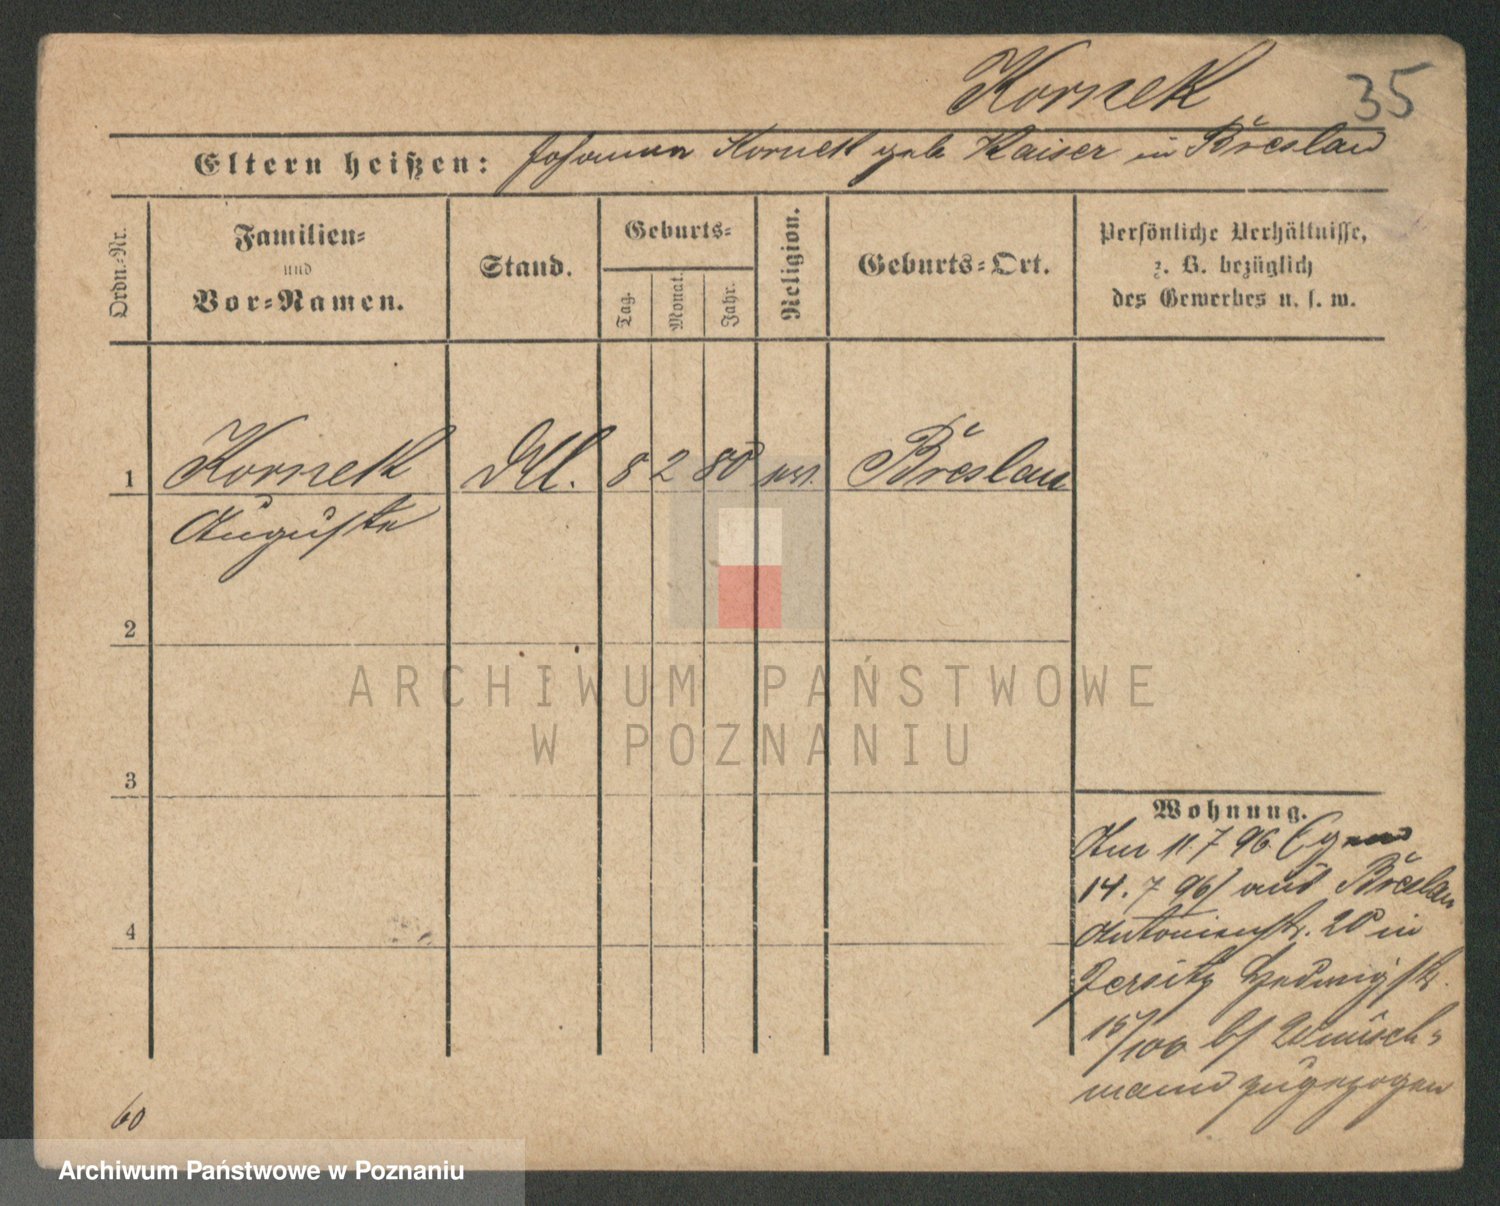 Kornek 35
Eltern heißen: Johanna Kornek geb Kaiser in Breslau
Ordn.-Nr.
Familien-
und
Vor-Namen.
Stand.
Geburts-
Tag.
Monat.
Jahr.
Religion.
Geburts-Ort.
Persönliche Verhältnisse,
z. B. bezüglich
des Gewerbes u. s. w.
1 Kornek 8 2 80 Breslau
Auguste
2
3
4
Wohnung.
Am 11. 7 96
14. 7 96 aus Breslau
Antonienstr. 20 in
Jersitz Hedwigstr.
15/106 b/ Wunsch-
mann zugezogen
60
ARCHIWUM PAŃSTWOWE
W POZNANIU
Archiwum Państwowe w Poznaniu